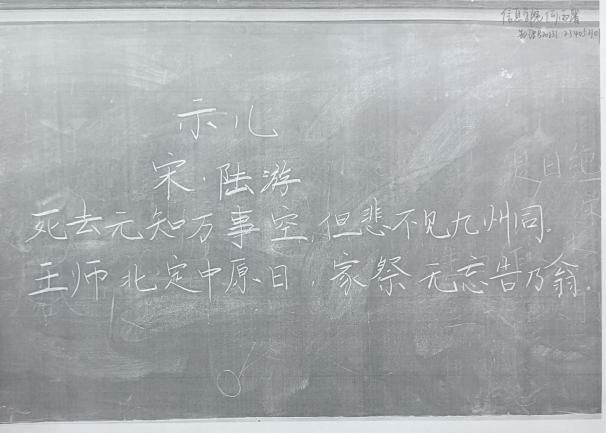 示儿
宋·陆游
死去元知万事空,但悲不见九州同.
王师北定中原日,家祭无忘告乃翁.